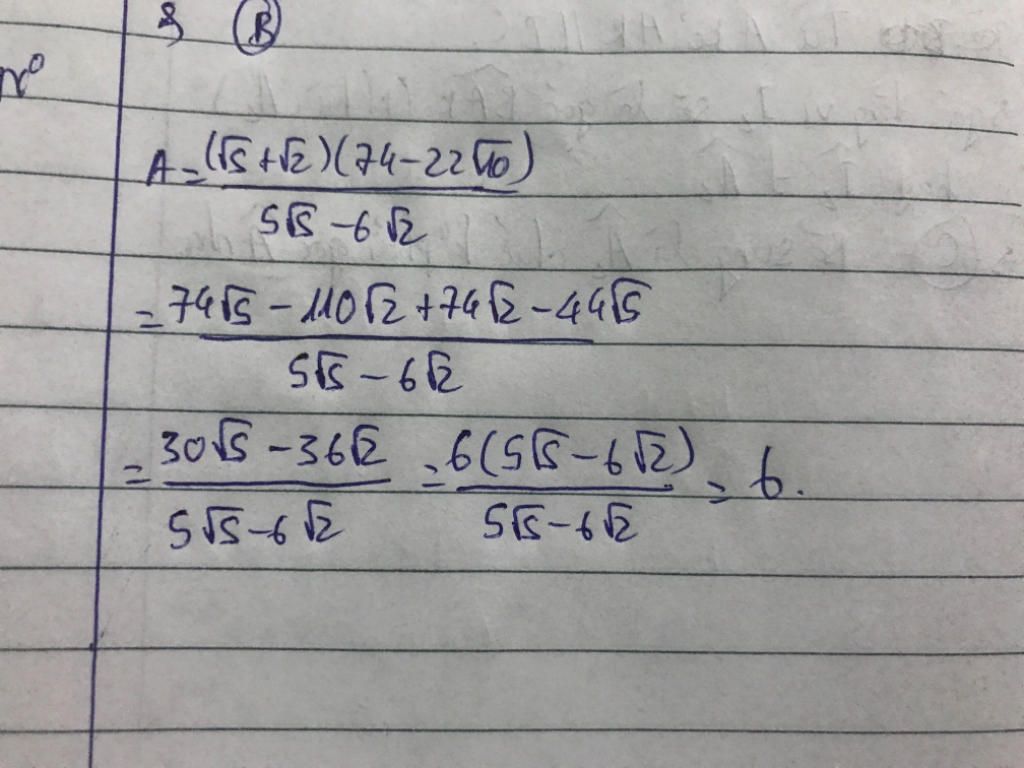 B
A = (√5 + √2)(74 - 22√10) / 5√5 - 6√2
= 74√5 - 110√2 + 74√2 - 44√5 / 5√5 - 6√2
= 30√5 - 36√2 / 5√5 - 6√2 = 6(5√5 - 6√2) / 5√5 - 6√2 = 6.